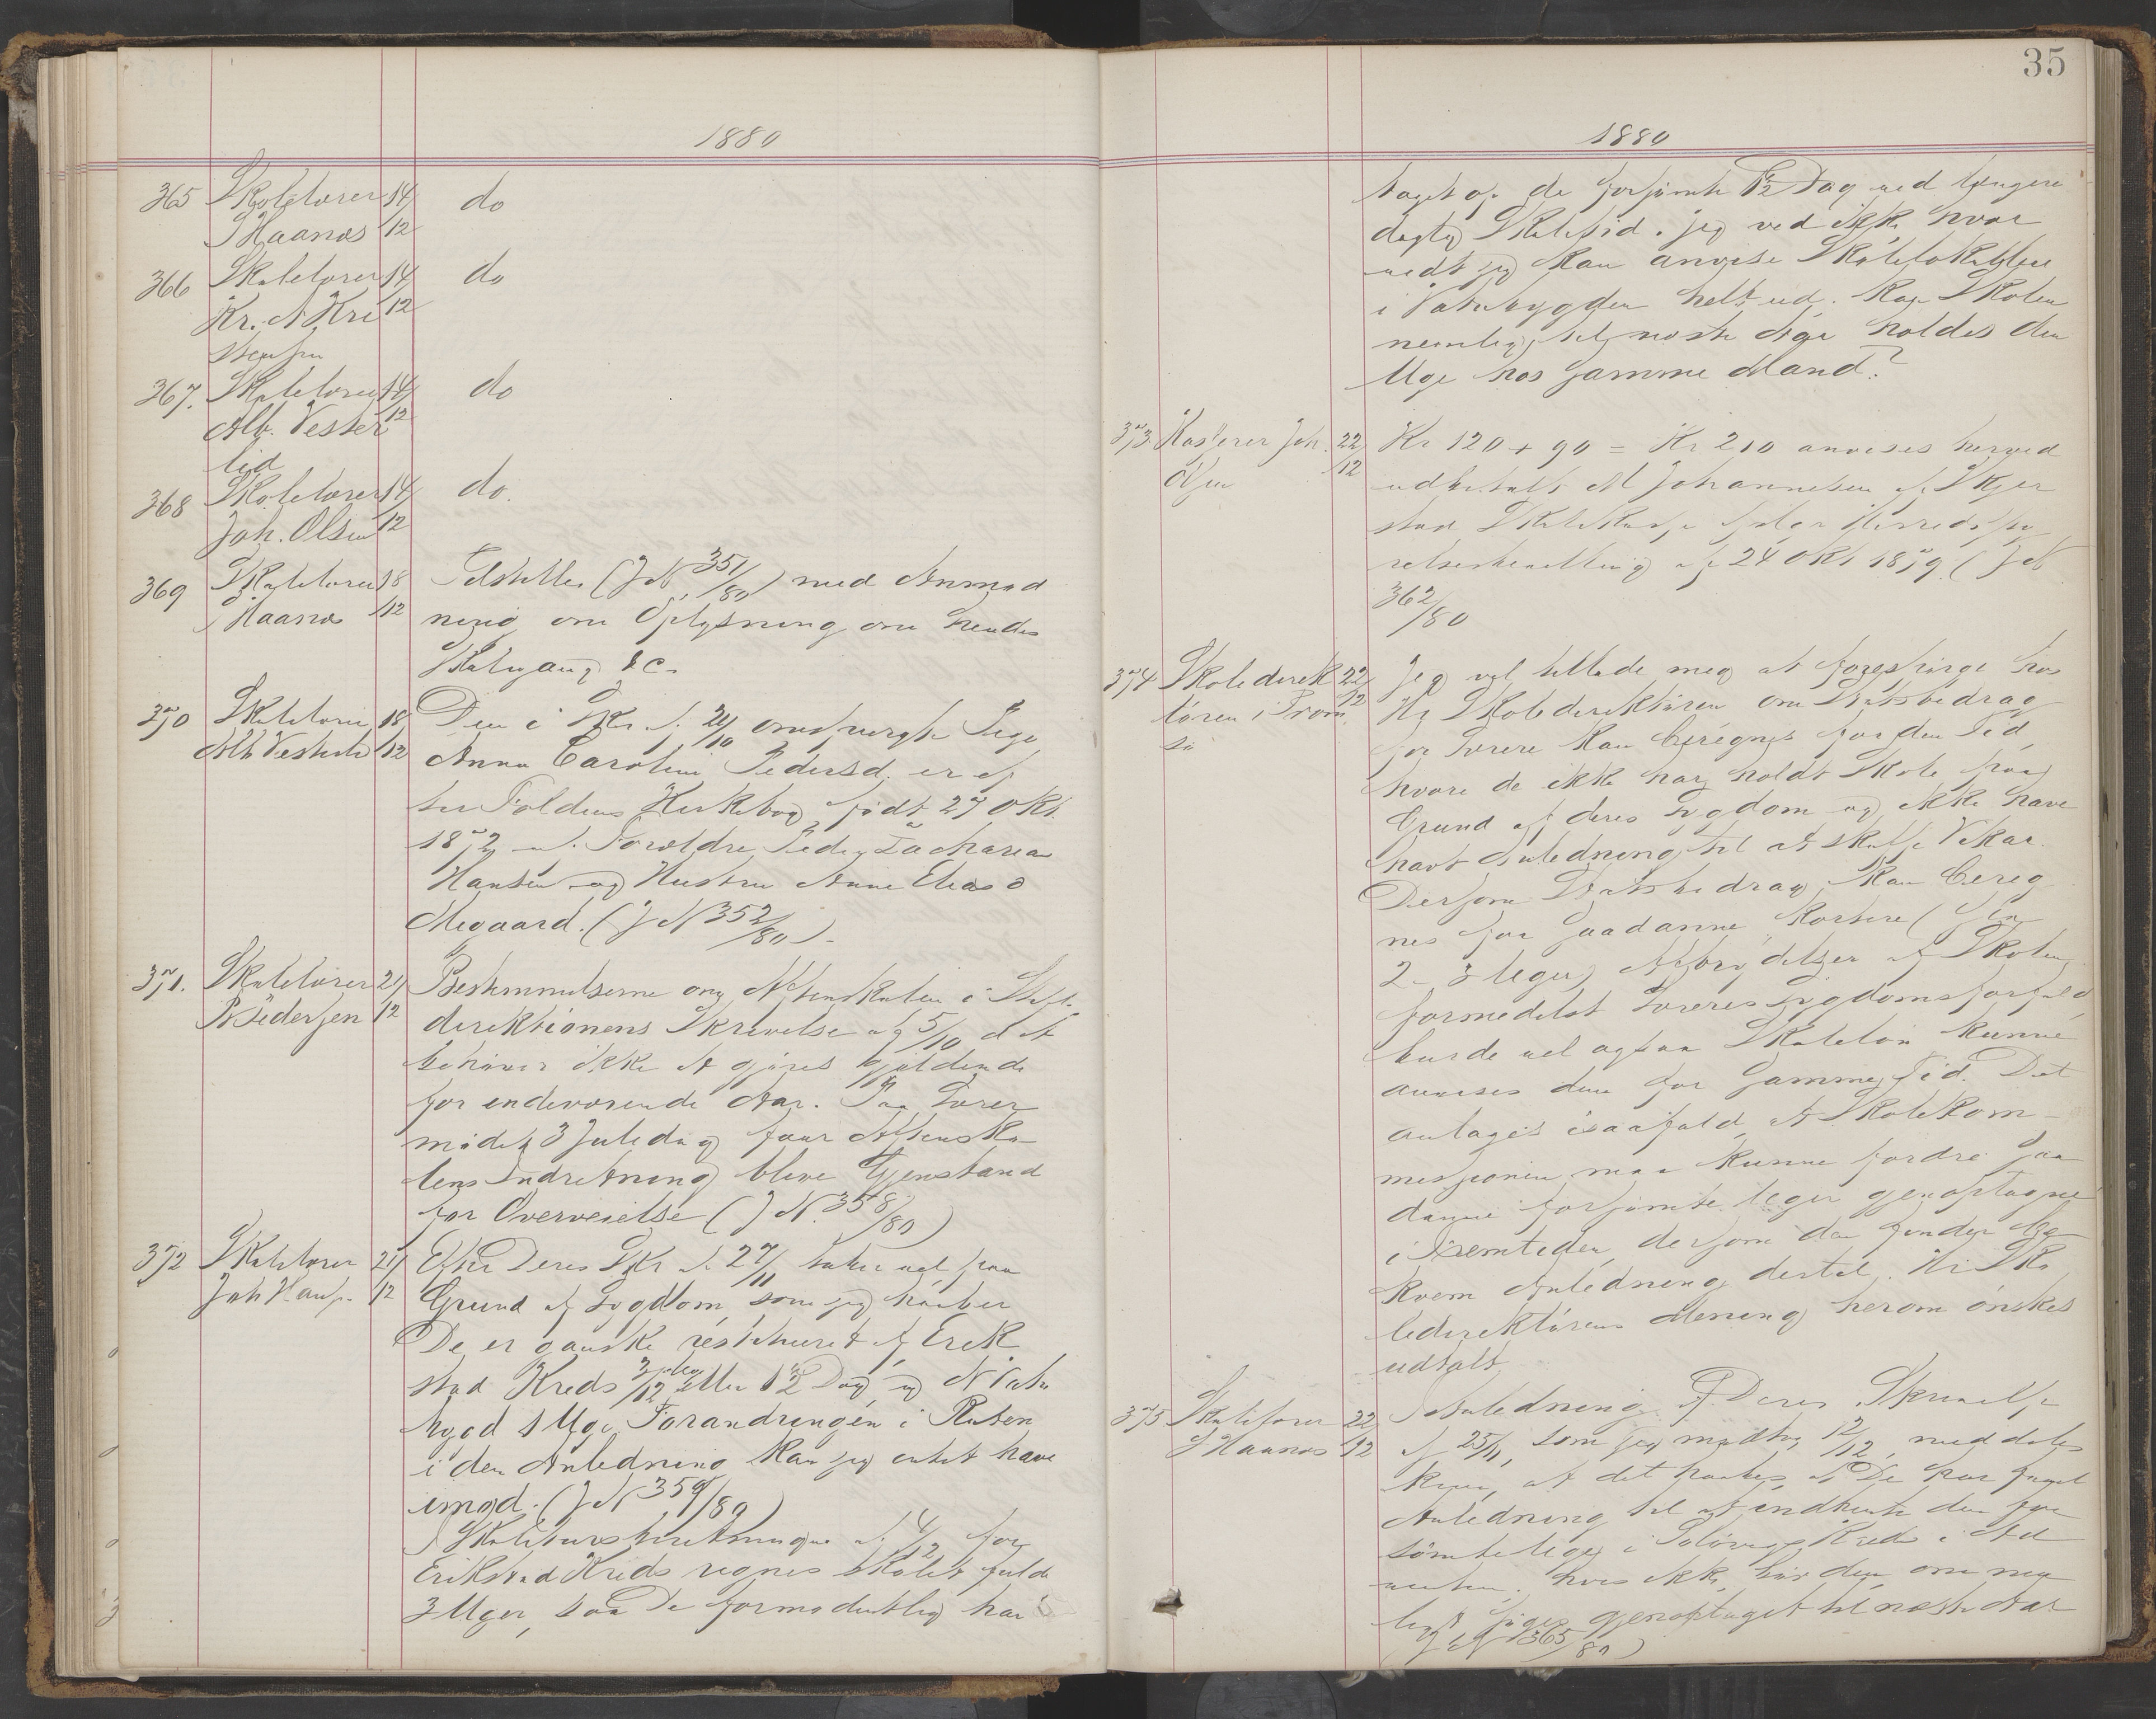 1880
365 Skolelærer 14/12 do
J Haanæs
366 Skolelærer 14/12 do
Kr. A Kri
stensen
367. Skolelærer 14/12 do
Alb. Vester
lid
368 Skolelærer 14/12 do.
Joh. Olsen
369 Skolelærer 18/12 Tilstilles (J N 351/80) med Anmod
J Haanæs ning om Oplysning om hendes
Skolegang &c.
370 Skolelærer 18/12 Den i Skr. af 24/10 omspurgte Pige
Alb Vesterli Anna Caroline Pedersd. er ef
ter Foldens Kirkebog født 27 Okt.
1872 af Forældre Peder Zacharias
Hansen og Hustru Anne Eliasd
Megaard. (J N 352/80).
371. Skolelærer 21/12 Bestemmelserne om Aftenskolen i Stifts
P Pedersen direktionens Skrivelse af 5/10 d A
behøver ikke at gjøres gjældende
for indeværende Aar. Paa Lærer
mødet 3 Juledag faar Aftensko
lens Indretning blive Gjenstand
for Overveielse (J N. 358/80)
372 Skolelærer 21/12 Efter Deres Skr af 27/11 tabte paa
Joh Hans. Grund af Sygdom, som jeg haaber
De er ganske restitueret af Erik
stad Kreds 3/12 eller 12 Dag, og N Vatn
bygd 1 Uge. Forandringen i Ruten
i den Anledning kan jeg intet have
imod. (J N 359/80)
I Skolelærerberetningen af 4/12 for
Erikstad Kreds regnes Skolet fulde
3 Uger, saa De formodentlig har
35
1880
taget op de forsømte 12 Dag ved længere
daglig Skoletid. Jeg ved ikke hvor
vidt jeg kan anvise Skolelokalerne
i Vatnbygden helt ud. Kan Skolen
nemlig til næste Aar holdes den
Uge hos samme Mand?
373 Kasserer Joh. 22/12 Kr 120 + 90 = Kr 210 anvises herved
udbetalt M Johannesen af Skjer
stad Skolekasse ifølge Herredssty
relsesbevilling af 24 Okt 1879. (J N
362/80
374 Skoledirek 22/12 Jeg vil tillade mig at forespørge hos
tøren i Trom Hr Skoledirektøren om Statsbidrag
sø for Lærere kan beregnes for den Tid,
hvori de ikke har holdt Skole paa
Grund af deres Sygdom og ikke have
havt Anledning til at skaffe Vikar.
Dersom Statsbidrag kan bereg
nes for saadanne kortere (
2-3 Uger) Afbrydelser af Skolen
formedelst Læreres Sygdomsforfald,
burde vel ogsaa Skoleløn kunne
anvises dem for samme Tid. Det
antages isaafald, at Skolekom-
missionen maa kunne fordre saa
danne forsømte Uger gjenoptagne
i Fremtiden, dersom den finder be
kvem Anledning dertil. Hr Sko
ledirektørens Mening herom ønskes
udtalt
375 Skolelærer 22/12 I Anledning af Deres Skrivelse
J Haanæs af 25/11, som jeg modtog 12/12, meddeles
at det haabes, at De har faaet
Anledning til at indhente den for
sømte Uge i Kreds i Ad
venten. Hvis ikke, bør den om mu
ligt søges gjenoptaget til næste Aar
(J N 365/80)